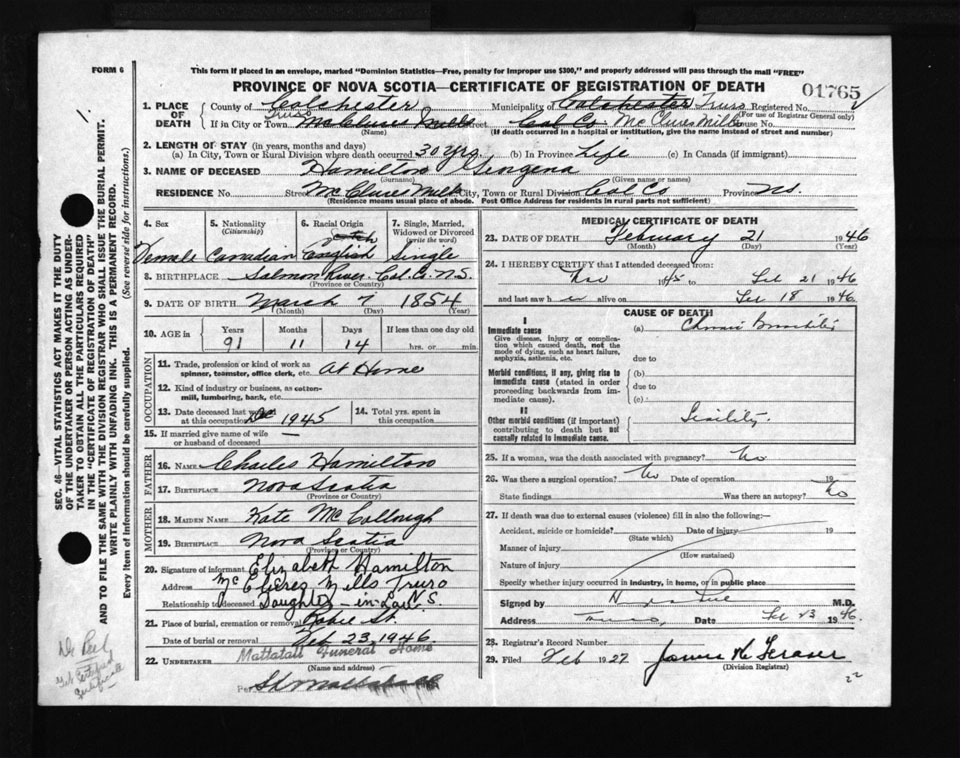 FORM 6
This form if placed in an envelope, marked "Dominion Statistics—Free, penalty for improper use $300," and properly addressed will pass through the mail "FREE"
PROVINCE OF NOVA SCOTIA—CERTIFICATE OF REGISTRATION OF DEATH
01765
1. PLACE OF DEATH
County of Colchester Municipality of Colchester Truro Registered No.
(For use of Registrar General only)
If in City or Town Truro McClures Mills Street Col Co McClures Mills House No.
(Name) (If death occurred in a hospital or institution, give the name instead of street and number)
2. LENGTH OF STAY (in years, months and days)
(a) In City, Town or Rural Division where death occurred 30 yrs (b) In Province Life (c) In Canada (if immigrant)
3. NAME OF DECEASED Hamilton Georgena
(Surname) (Given name or names)
RESIDENCE No. Street McClures Mills City, Town or Rural Division Col Co Province N.S.
(Residence means usual place of abode. Post Office Address for residents in rural parts not sufficient)
4. Sex 5. Nationality (Citizenship) 6. Racial Origin 7. Single, Married, Widowed or Divorced (write the word)
Female Canadian Single
8. BIRTHPLACE Salmon River Col. Co. N.S.
(Province or Country)
9. DATE OF BIRTH March 7 1854
(Month) (Day) (Year)
10. AGE in Years Months Days If less than one day old
91 11 14 hrs. or min.
OCCUPATION
11. Trade, profession or kind of work as spinner, teamster, office clerk, etc. At Home
12. Kind of industry or business, as cotton-mill, lumbering, bank, etc.
13. Date deceased last worked at this occupation Dec 1945 14. Total yrs. spent in this occupation
15. If married give name of wife or husband of deceased —
FATHER
16. NAME Charles Hamilton
17. BIRTHPLACE Nova Scotia
(Province or Country)
MOTHER
18. MAIDEN NAME Kate McCollough
19. BIRTHPLACE Nova Scotia
(Province or Country)
20. Signature of informant Elizabeth Hamilton
Address Mills Truro
Relationship to deceased Daughter-in-Law N.S.
21. Place of burial, cremation or removal Robie St.
Date of burial or removal Feb 23, 1946
22. UNDERTAKER Mattatall Funeral Home
(Name and address)
Per
MEDICAL CERTIFICATE OF DEATH
23. DATE OF DEATH February 21 1946
(Month) (Day) (Year)
24. I HEREBY CERTIFY that I attended deceased from:
1945 to Feb 21 1946
and last saw her alive on Feb 18 1946
CAUSE OF DEATH
I
Immediate cause
Give disease, injury or complication which caused death, not the mode of dying, such as heart failure, asphyxia, asthenia, etc.
(a) Chronic Bronchitis
due to
Morbid conditions, if any, giving rise to immediate cause (stated in order proceeding backwards from immediate cause).
(b)
due to
(c)
II
Other morbid conditions (if important) contributing to death but not causally related to immediate cause.
Senility
25. If a woman, was the death associated with pregnancy? No
26. Was there a surgical operation? No Date of operation 19
State findings Was there an autopsy? No
27. If death was due to external causes (violence) fill in also the following:—
Accident, suicide or homicide? Date of injury 19
(State which)
Manner of injury
(How sustained)
Nature of injury
Specify whether injury occurred in industry, in home, or in public place
Signed by M.D.
Address Truro, Date Feb 23 1946
28. Registrar's Record Number
29. Filed Feb 1927 James
(Division Registrar)
22
SEC. 46—VITAL STATISTICS ACT MAKES IT THE DUTY
OF THE UNDERTAKER OR PERSON ACTING AS UNDER-
TAKER TO OBTAIN ALL THE PARTICULARS REQUIRED
IN THE "CERTIFICATE OF REGISTRATION OF DEATH"
AND TO FILE THE SAME WITH THE DIVISION REGISTRAR WHO SHALL ISSUE THE BURIAL PERMIT.
WRITE PLAINLY WITH UNFADING INK. THIS IS A PERMANENT RECORD.
Every item of information should be carefully supplied. (See reverse side for instructions.)
Dr Peel